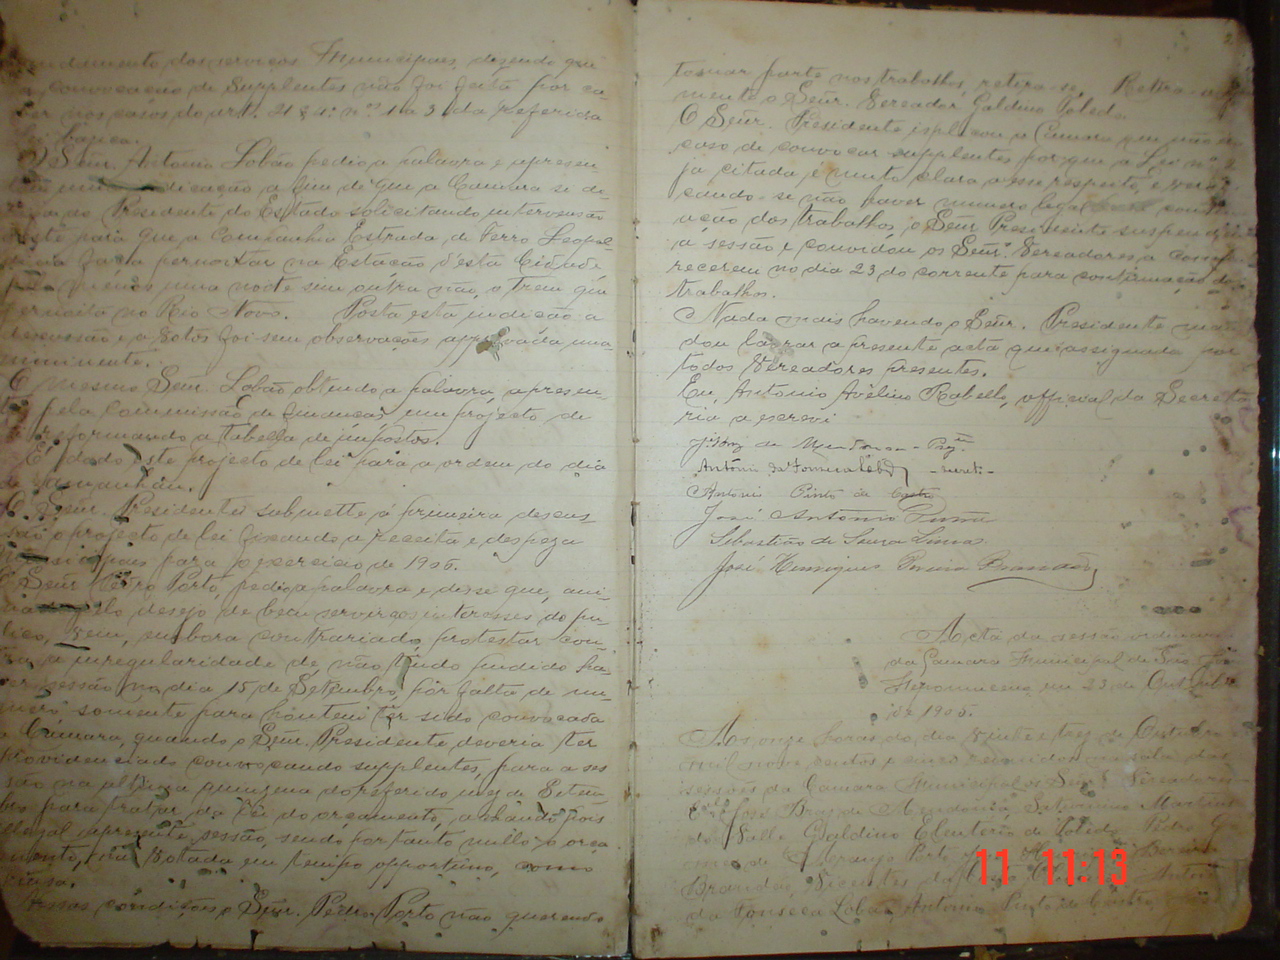 andamento dos serviços Municipaes, dizendo que
a convocação de Supplentes não foi feita por ca-
ber nos casos do art. 21 § 4º nos 1 a 3 da referida
lei basica.
O Señr. Antonio Lobão pedio a palavra e apresen-
tou uma indicação a fim de que a Camara se di-
rija ao Presidente do Estado solicitando intervenção
deste para que a Companhia Estrada de Ferro Leopol-
dina faça pernoitar na Estação d'esta Cidade
pelo menos uma noite sim outra não, o trem que
pernoita no Rio Novo. Posta esta indicação a
discussão e a votos foi sem observações approvada una-
nimimente.
O mesmo Señr. Lobão obtendo a palavra, apresen-
pela Commissão de finanças um projecto de
reformando a tabella de impostos.
É dado este projecto de lei para a ordem do dia
de amanhã.
O Señr. Presidente submette á primeira discus-
são o projecto de lei fixando a receita e despeza
municipaes para o exercicio de 1906.
O Señr. Pedro Porto, pedio a palavra e disse que, ani-
mado pelo desejo de bem servir aos interesses do pu-
blico, vem, embora contrariado, protestar con-
tra a irregularidade de não tendo podido ha-
ver sessão no dia 15 de Setembro, por falta de nu-
mero somente para hontem ter sido convocada
a Camara, quando o Señr. Presidente deveria ter
providenciado convocando supplentes, para a ses
são na ultima quinzena do referido mez de Setem-
bro para tratar da Lei do orçamento, achando pois
illegal a presente sessão, sendo portanto nullo o orça-
mento, não votada em tempo opportuno, como
Nessas condições o Señr. Pedro Porto não querendo
2
tomar parte nos trabalhos, retira-se. Retira-se
mente o Señr. Vereador Galdino Toledo.
O Señr. Presidente isplicou a Camara que não
caso de convocar supplentes por que a Lei nº 2
já citada é muito clara a esse respeito, e veri-
cando-se não haver numero legal conti-
nuação dos trabalhos, o Señr Presidente suspendeu
a sessão e convidou os Señrs. Vereadores a compa-
recerem no dia 23 do corrente para continuação dos
trabalhos.
Nada mais havendo o Señr. Presidente man-
dou lavrar a presente acta que assignada por
todos Vereadores presentes.
Eu, Antonio Avelino Rabello, official da Secreta-
ria a escrevi
J. Braz de Mendonça - Prez.te
Antônio da Fonseca Lobão - secret.-
Antonio Pinto de Castro
José Antonio
Sebastião de Souza Lima
José Henriques Pereira Brandão
Acta da sessão ordinaria
da Camara Municipal de São João
Nepomuceno em 23 de Outubro
de 1905.
Aos onze horas do dia vinte e tres de Outubro
mil nove centos e cinco reunidos na sala das
sessões da Camara Municipal os Señrs. Vereadores
José Braz de Mendonça, Saturnino Martins
do Valle, Galdino Eleuterio de Toledo, Pedro Go-
mes de Porto, José Henriques Pereira
Brandão, Antonio
da Fonseca Lobão, Antonio Pinto de Castro
11 11:13